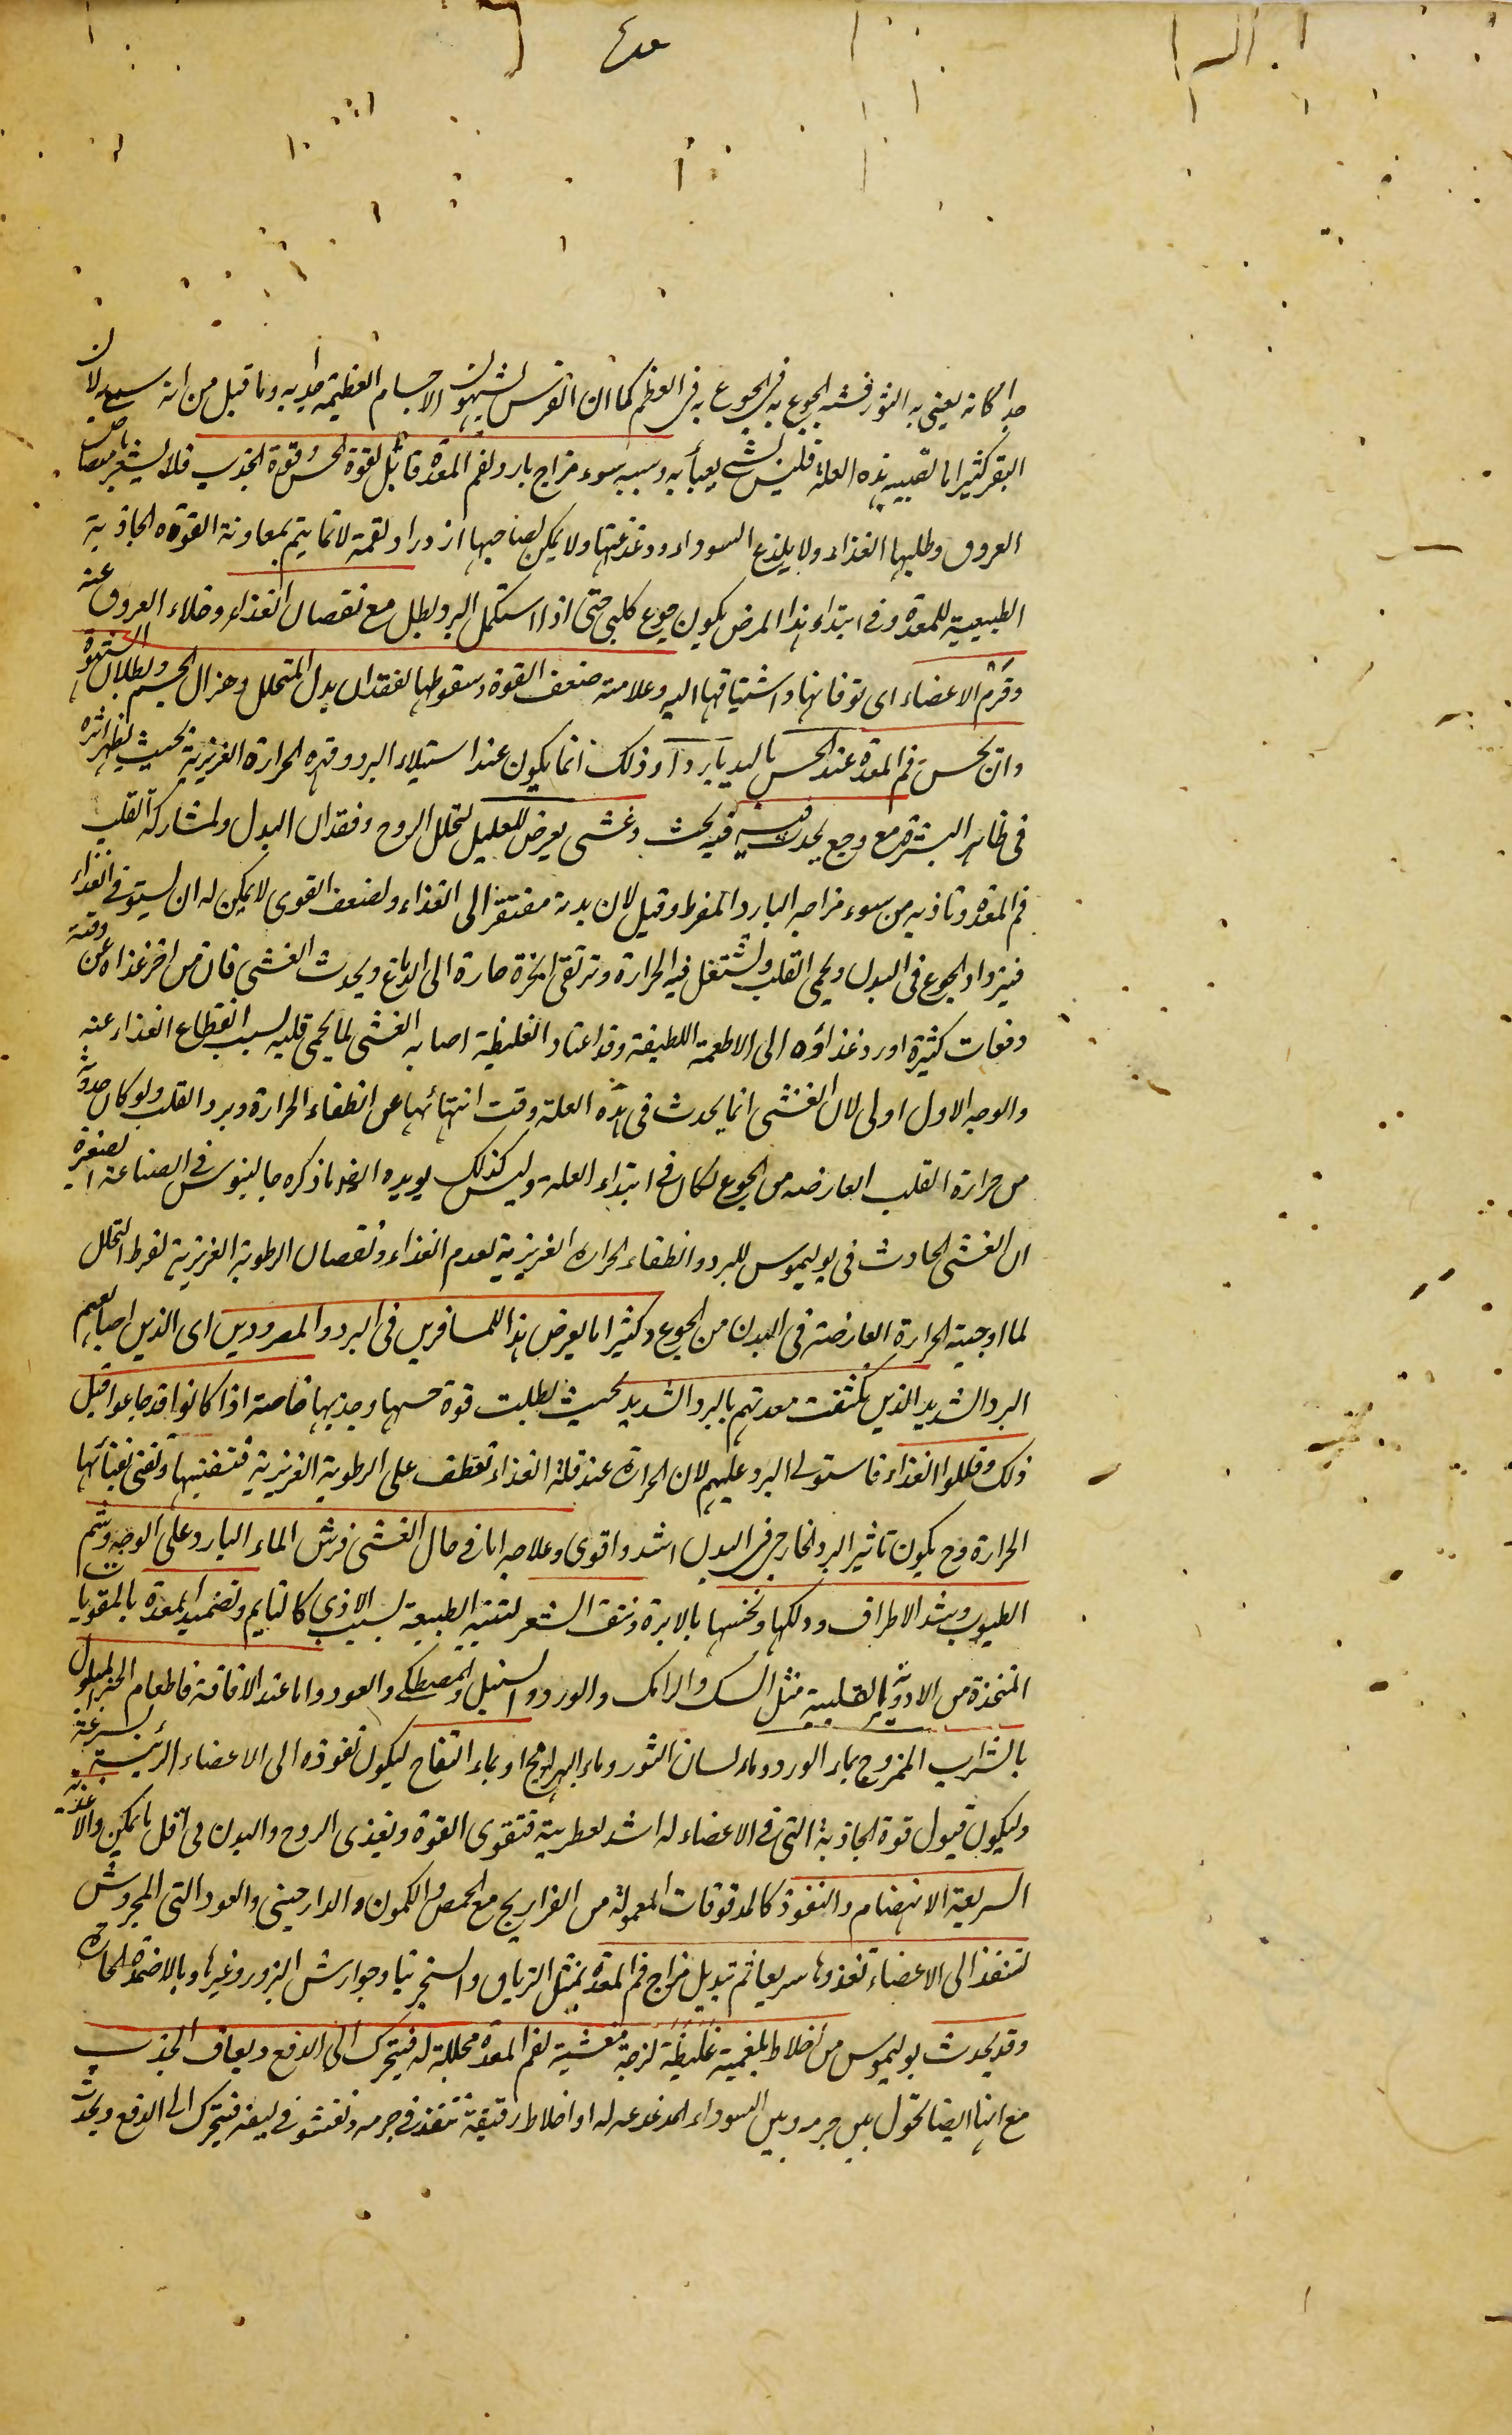 جدا كانه يعنى به الثور فشبه الجوع به فى الجوع به فى العظم كما ان الفرس يشبهون الاجسام العظيمة جدا به وما قيل من انه سمى به لان
البقر كثيرا ما تصيبه هذه العلة فليس بشئ يعبأ به وسببه سوء مزاج بارد لفم المعدة قاتل لقوة الحس وقوة الجذب فلا يشعر بامتصاص
العروق وطلبها الغذاء ولا بلذع السوداء ودغدغتها ولا يمكن لصاحبها ازدراد لقمة لانما يتم بمعاونة القوة الجاذبة
الطبيعية للمعدة وفى ابتداء هذا المرض يكون جوع كلبى حتى اذا استكمل البرد بطل مع نقصان الغذاء وخلاء العروق عنه
وقرم الاعضاء اى توقانها واشتياقها اليه وعلامته ضعف القوة وسقوطها لفقدان بدل المتحلل وهزال الجسم وبطلان الشهوة
وان يحس فم المعدة عند الحس باليد باردا وذلك انما يكون عند استيلاء البرد وقهره الحرارة الغريزية بحيث يظهر اثره
فى ظاهر البشرة مع وجع يحدث فيه وغشى يعرض للعليل لتحلل الروح وفقدان البدل ولمشاركة القلب
فم المعدة وتأذيه من سوء مزاجه البارد المفرط وقيل لان بدنه مفتقر الى الغذاء ولضعف القوى لا يمكن له ان يستوفى الغذاء
فيزداد الجوع فى البدن ويحمى القلب وتشتعل فيه الحرارة وترتقى ابخرة حارة الى الدماغ ويحدث الغشى فان من اخر غذاه عن وقته
دفعات كثيرة او رد غذاؤه الى الاطعمة اللطيفة وقد اعتاد الغليظة اصابه الغشى لما يحمى قلبه بسبب انقطاع الغذاء عنه
والوجه الاول اولى لان الغشى انما يحدث فى هذه العلة وقت انتهائها عن انطفاء الحرارة وبرد القلب ولو كان حدوثه
من حرارة القلب العارضه من الجوع لكان فى ابتداء العلة وليس كذلك يويده ايضا ما ذكره جالينوس فى الصناعة الصغيرة
ان الغشى الحادث فى بوليموس للبرد وانطفاء الحرارة الغريزية لعدم الغذاء ونقصان الرطوبة الغريزية لفرط التحلل
لما اوجبته الحرارة العارضة فى البدن من الجوع وكثيرا ما يعرض هذا للمسافرين فى البرد والمصرودين اى الذين اصابهم
البرد الشديد الذين تكثفت معدتهم بالبرد الشديد بحيث بطلت قوة حسها وجذبها خاصة اذا كانوا قد جاعوا قبل
ذلك وقللوا الغذاء فاستولى البرد عليهم لان الحرارة عند قلة الغذاء تعطف على الرطوبة الغريزية فتفنيها وتفنى بفنائها
الحرارة وح يكون تاثير البرد الخارجى فى البدن اشد واقوى وعلاجه اما فى حال الغشى فرش الماء البارد على الوجه وشم
الطيوب وشد الاطراف ودلكها ونخسها بالابرة ونتف الشعر لتنبه الطبيعة بسبب الاذى كالنايم وتضميد المعدة بالمقويات
المتخذة من الادوية القلبية مثل السك والرامك والورد والسنبل والمصطكى والعود واما عند الافاقة فاطعام الخبز المبلول
بالشراب الممزوج بماء الورد وماء لسان الثور وماء البهرامج او بماء التفاح ليكون نفوذه الى الاعضاء الرئيسة بسرعة
وليكون قبول قوة الجاذبة التى فى الاعضاء له اشد لعطريته فتقوى القوة ويغذى الروح والبدن فى اقل ما يمكن والاغذية
السريعة الانهضام والنفوذ كالمدقوقات المعمولة من الفراريج مع الحمص والكمون والدارچينى والعود التى المجروش
لتنفذ الى الاعضاء تغذوها سريعا ثم تبديل مزاج فم المعدة بمثل الترياق والسنجرنيا وجوارش البزور وغيرها وبالاضمدة الحارة
وقد يحدث بوليموس من اخلاط بلغمية غليظة لزجة مغشية لفم المعدة محللة له فيتحرك الى الدفع ويعاف الجذب
مع انها ايضا تحول بين جرمه وبين السوداء المدغدغه له او اخلاط رقيقة تنفذ فى جرمه وتفشو فى ليفه فيتحرك الى الدفع ويحدث